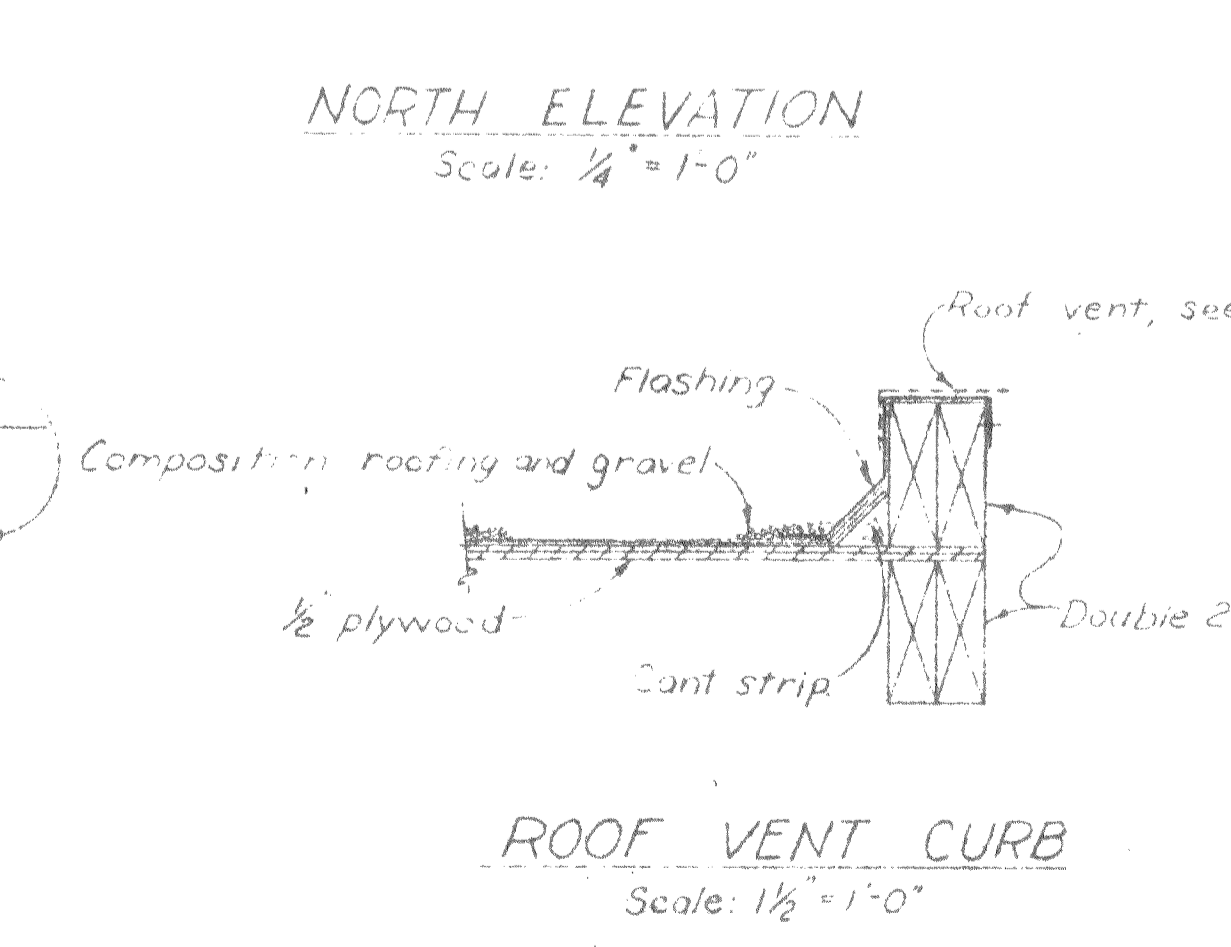 NORTH ELEVATION
Scale: 1/4" = 1'-0"
Roof vent, see
Flashing
Composition roofing and gravel
1/2" plywood
Double 2
Cant strip
ROOF VENT CURB
Scale: 1 1/2" = 1'-0"